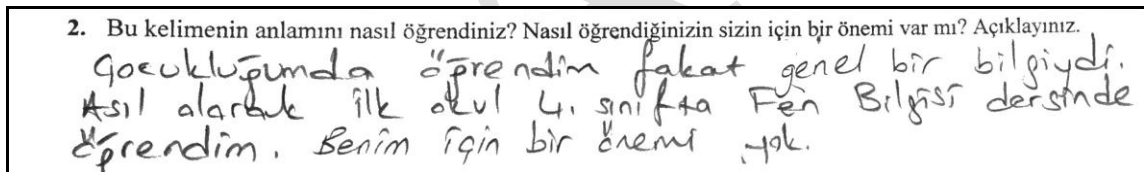 2. Bu kelimenin anlamını nasıl öğrendiniz? Nasıl öğrendiğinizin sizin için bir önemi var mı? Açıklayınız.
Çocukluğumda öğrendim fakat genel bir bilgiydi.
Asıl olarak ilk okul 4. sınıfta Fen Bilgisi dersinde
öğrendim. Benim için bir önemi yok.